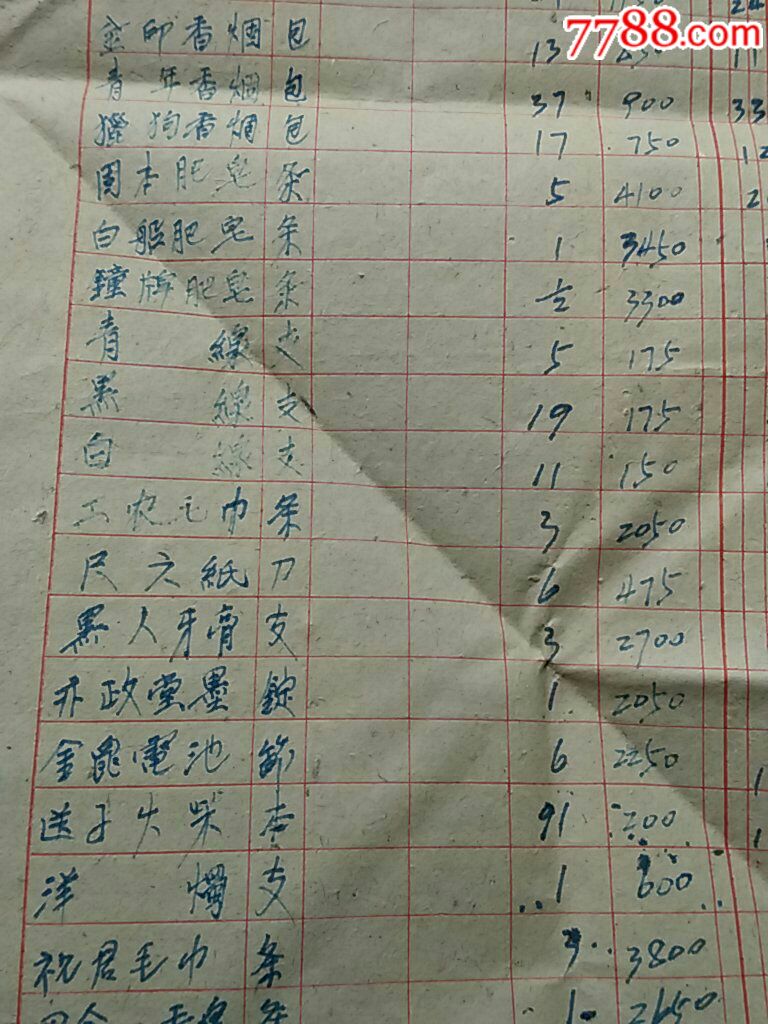 7788.com
金印香烟 包 13
青年香烟 包 37 900 33
獵狗香烟 包 17 750
固本肥皂 条 5 4100
白船肥皂 条 1 3450
鐘牌肥皂 条 ½ 3300
青 線 支 5 175
黑 線 支 19 175
白 線 支 11 150
工农毛巾 条 3 2050
尺六紙 刀 6 475
黑人牙膏 支 3 2700
亦政堂墨 錠 1 2050
金龍電池 節 6 2250
送子火柴 91 200
洋 燭 支 1 600
祝君毛巾 条 3 3800
1 2650